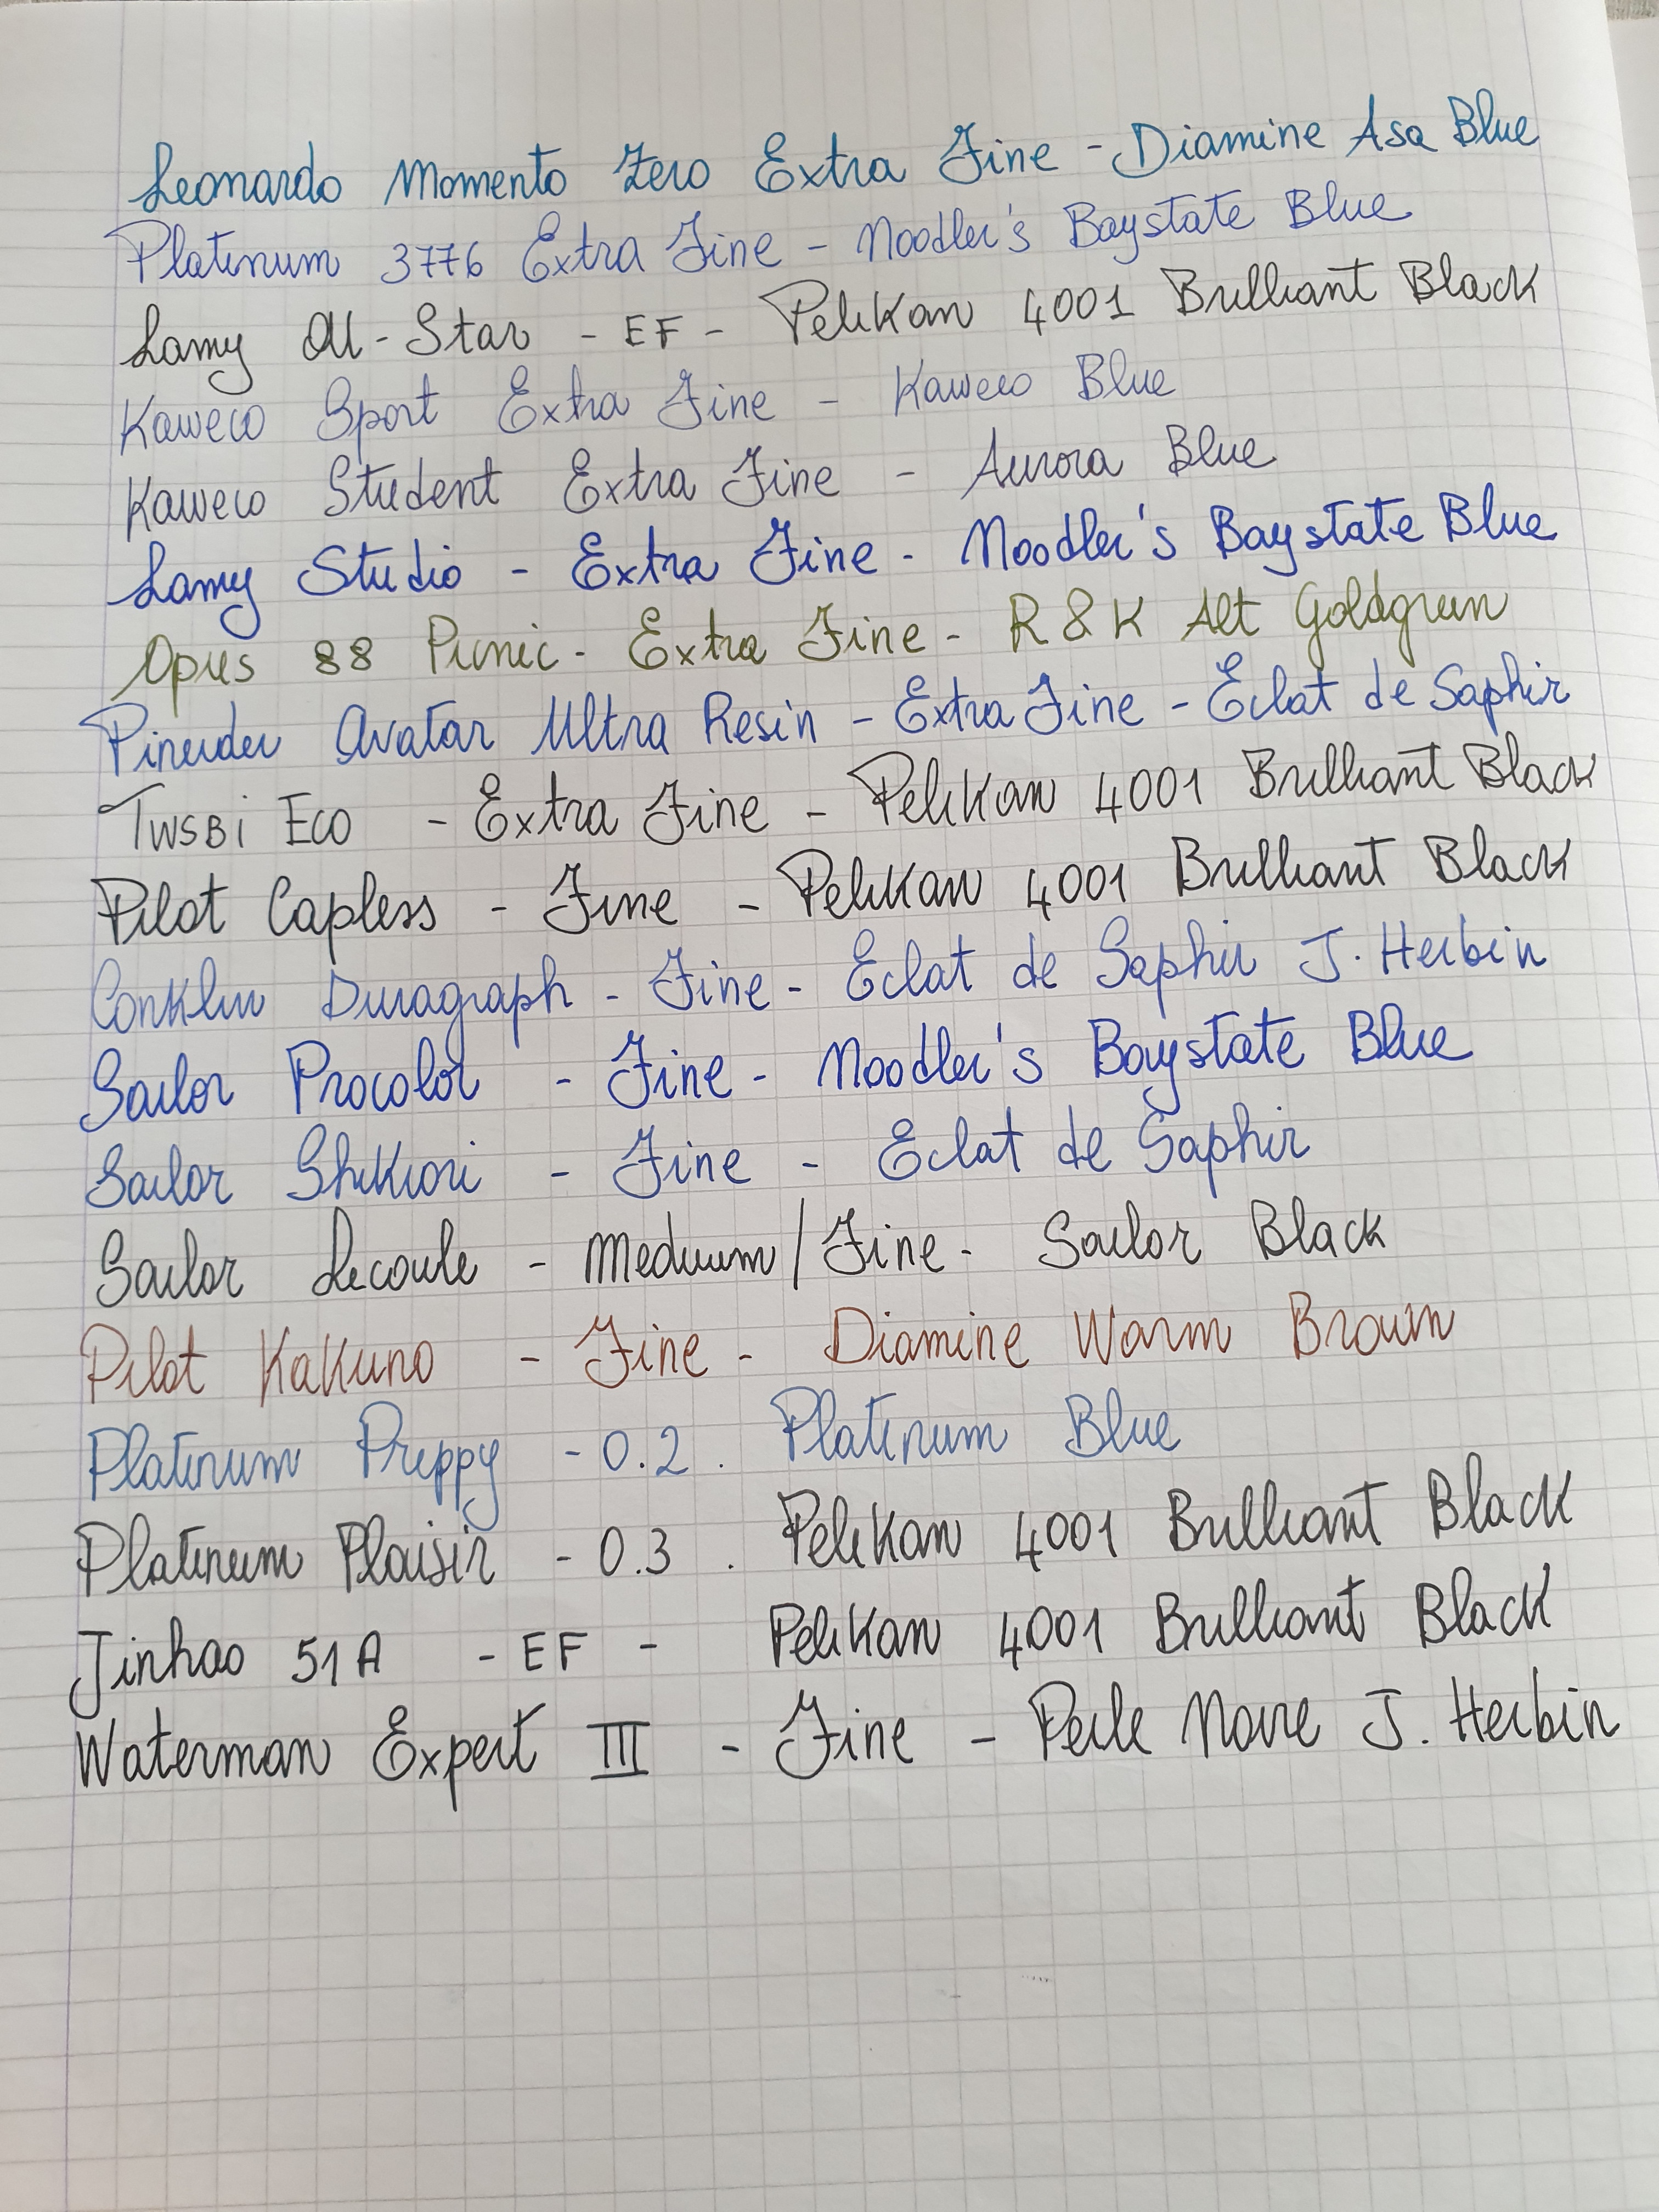 Leonardo Momento Zero Extra Fine - Diamine Asa Blue
Platinum 3776 Extra Fine - Noodler's Baystate Blue
Lamy Al-Star - EF - Pelikan 4001 Brilliant Black
Kaweco Sport Extra Fine - Kaweco Blue
Kaweco Student Extra Fine - Aurora Blue
Lamy Studio - Extra Fine - Noodler's Baystate Blue
Opus 88 Picnic - Extra Fine - R & K Alt Goldgrun
Pineider Avatar Ultra Resin - Extra Fine - Eclat de Saphir
Twsbi Eco - Extra Fine - Pelikan 4001 Brilliant Black
Pilot Capless - Fine - Pelikan 4001 Brilliant Black
Conklin Duragraph - Fine - Eclat de Saphir J. Herbin
Sailor Procolor - Fine - Noodler's Baystate Blue
Sailor Shikiori - Fine - Eclat de Saphir
Sailor Lecoule - Medium / Fine - Sailor Black
Pilot Kakuno - Fine - Diamine Warm Brown
Platinum Preppy - 0.2 . Platinum Blue
Platinum Plaisir - 0.3 . Pelikan 4001 Brilliant Black
Jinhao 51A - EF - Pelikan 4001 Brilliant Black
Waterman Expert III - Fine - Perle Noire J. Herbin